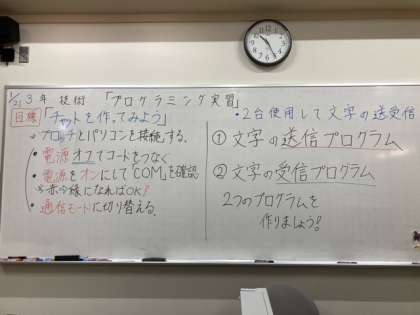 1/21 3年 技術 「プログラミング実習」
目標 「チャットを作ってみよう」
プロッチとパソコンを接続する。
・電源オフでコードをつなぐ
・電源をオンにして「COM」を確認
赤や緑になればOK!
・通信モードに切り替える。
・2台使用して文字の送受信
① 文字の送信プログラム
② 文字の受信プログラム
2つのプログラムを
作りましょう!